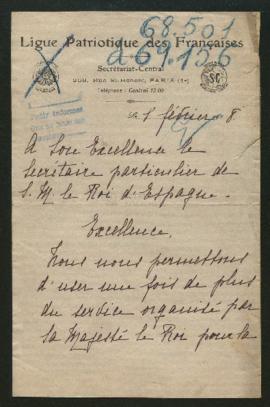 68.501
à 69.156
Ligue Patriotique des Françaises
Secrétariat-Central
368, Rue St-Honoré, PARIS (1er)
Téléphone : Central
1 février 8
A Son Excellence le
Secrétaire particulier de
S. M. le Roi d'Espagne.
Excellence,
Nous nous permettons
d'user une fois de plus
du service organisé par
Sa Majesté le Roi pour la